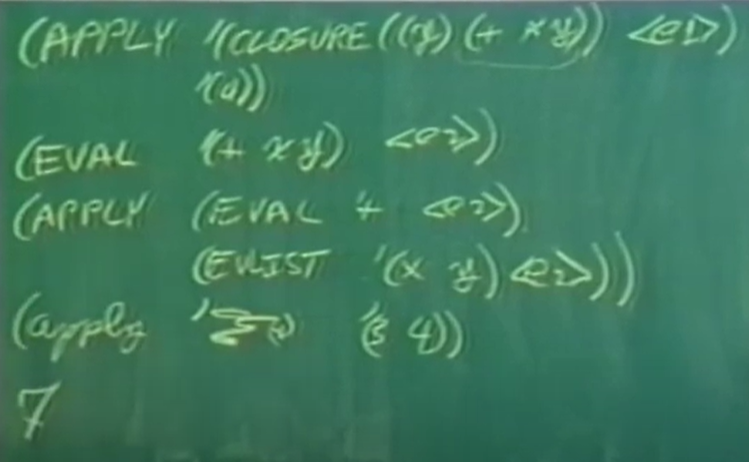 (APPLY '(CLOSURE ((y) (+ x y)) <e1>)
'(4))
(EVAL '(+ x y) <e2>)
(APPLY (EVAL '+ <e2>)
(EVLIST '(x y) <e2>)))
(apply '(3 4))
7